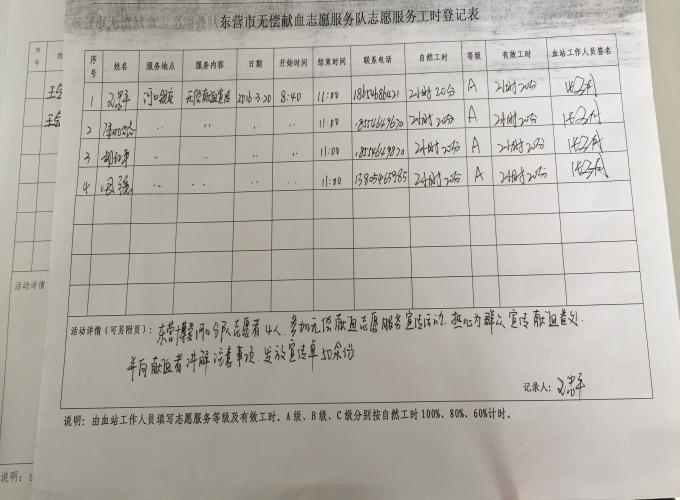 东营市无偿献血志愿服务队志愿服务工时登记表
序号 姓名 服务地点 服务内容 日期 开始时间 结束时间 联系电话 自然工时 等级 有效工时 血站工作人员签名
1 河口银座 无偿献血宣传 2016-3-20 8:40 11:00 2小时20分 A 2小时20分
2 〃 〃 〃 〃 11:00 2小时20分 A 2小时20分
3 〃 〃 〃 〃 11:00 2小时20分 A 2小时20分
4 〃 〃 〃 〃 11:00 13805465985 2小时20分 A 2小时20分
活动详情（可另附页）：东营博爱河口分队志愿者4人，参加无偿献血志愿服务宣传活动，热心为群众宣传献血意义，
并向献血者讲解注意事项，发放宣传单50余份
记录人：
说明：由血站工作人员填写志愿服务等级及有效工时。A级、B级、C级分别按自然工时100%、80%、60%计时。
序号
活动详情
说明：